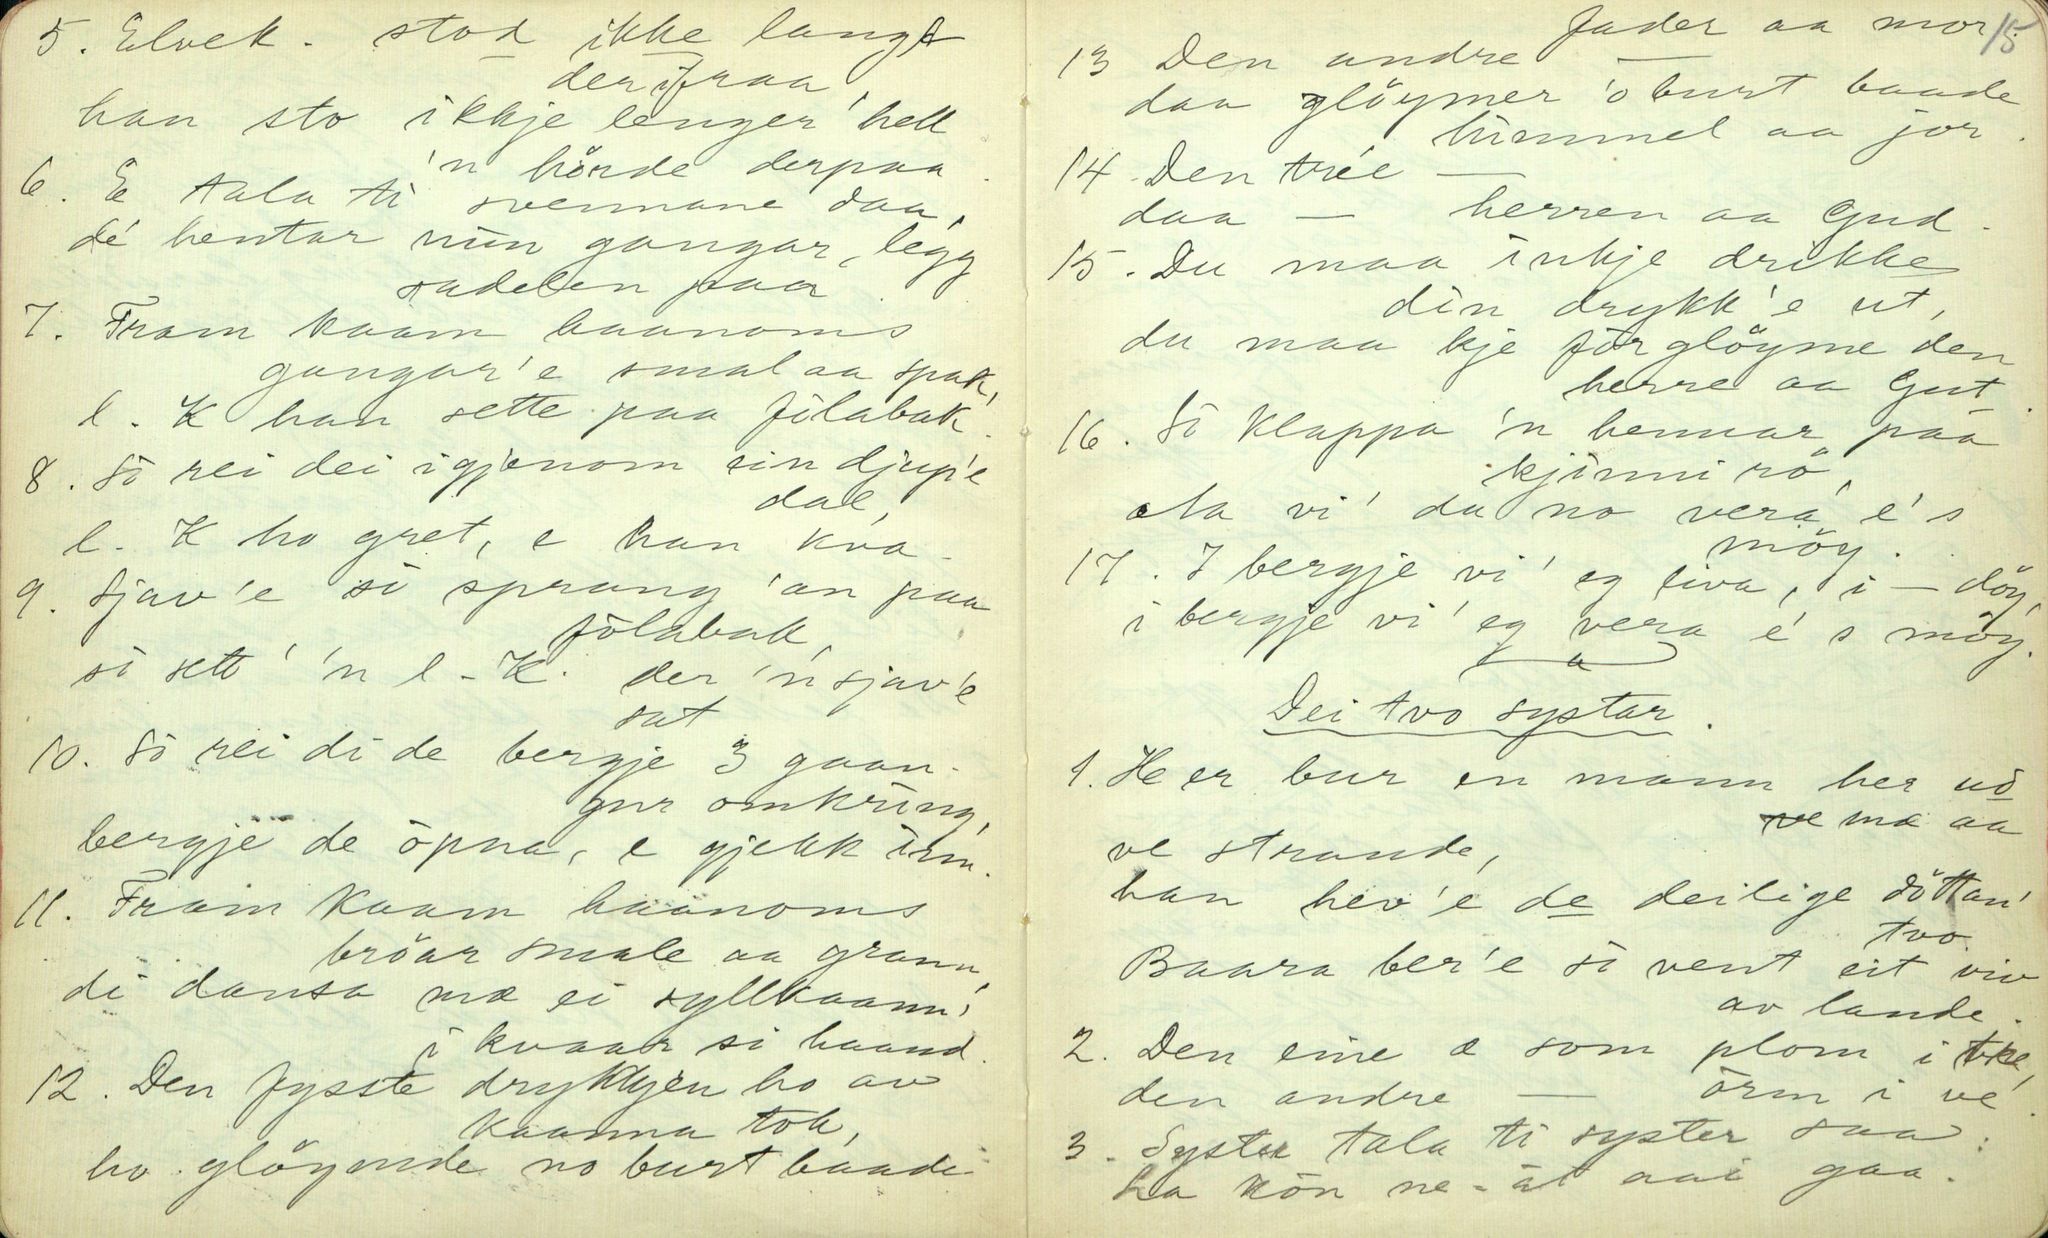 5. Elvek. stod ikke langt
derifraa,
han sto ikkje lenger hell
'n hörde derpaa.
6. E tala ti svennane daa,
dé hentar min gangar, legg
sadelen paa.
7. Fram kaam haanoms
gangar'e smal aa spak,
l. K han sette paa fölabak.
8. Sö rei dei igjenom ein djup'e
dal,
l. K ho gret, e han kva.
9. Sjav'e sö sprang 'an paa
fölabak
sö sett' 'n l-K. der 'n sjav'e
sat
10. Sö rei di de bergje 3 gaan-
gur omkring,
bergje de öpna, e gjekk inn.
11. Fram kaam haanoms
bröar smale aa grann'
di dansa mæ ei syllkaann'
i kvaar si haand.
12. Den fysste drykkjen ho av
kaanna tok,
ho glöymde no burt baade
15
fader aa mor.
13 Den andre —
daa glöymer 'o burt baade
himmel aa jor.
14. Den trée —
daa — herren aa Gud.
15. Du maa inkje drikke
din drykk'e ut,
du maa kje förglöyme den
herre aa Gut.
16. Sö klappa 'n hennar paa
kjinni rö,
Aa vi' du no vera é's
möy.
17. I bergje vi' eg liva, i — döy,
i bergje vi' eg vera é's möy.
Dei tvo systar.
1. Her bur en mann her uö
ve mæ aa
ve strande,
han hev'e de deilige döttan'
tvo.
Baara ber'e sö vent eit viv
av lande.
2. Den eine æ som plom i tre,
den andre — örm i vé.
3. Syster tala ti syster saa:
La kön ne-ât aai gaa.